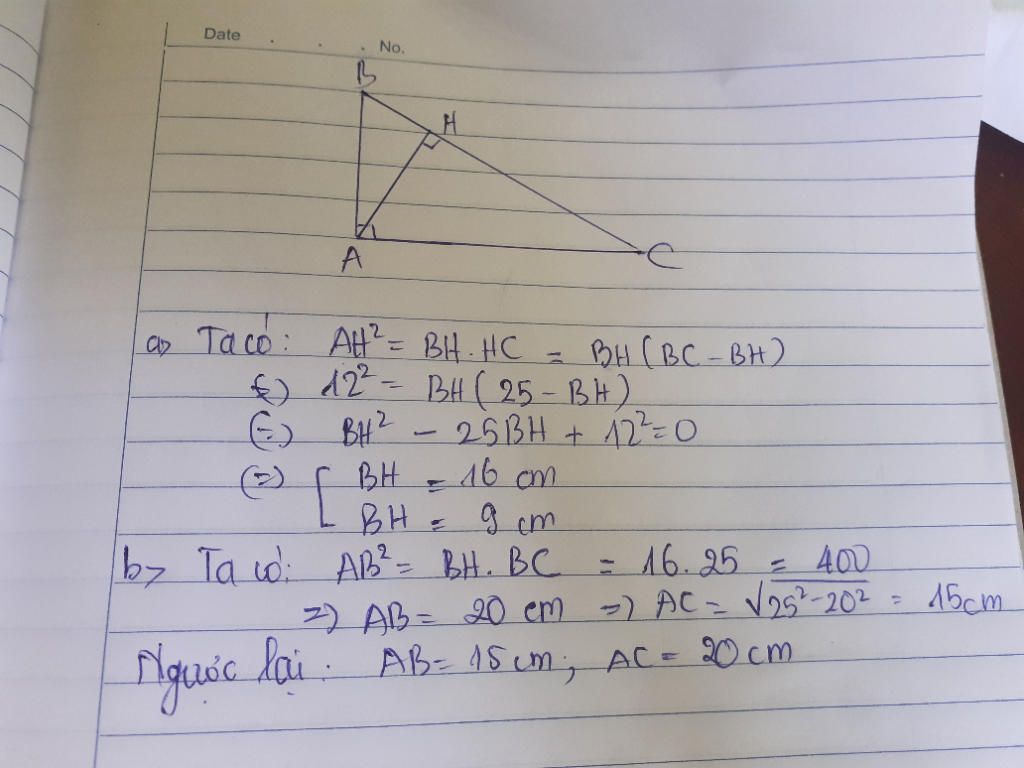 Date . . . No.
B
H
A
C
a> Ta có: AH² = BH.HC = BH(BC-BH)
(=) 12² = BH(25-BH)
(=) BH² - 25BH + 12² = 0
(=) [ BH = 16 cm
BH = 9 cm
b> Ta có: AB² = BH.BC = 16.25 = 400
=) AB = 20 cm =) AC = √25²-20² = 15cm
Ngược lại: AB = 15 cm; AC = 20 cm